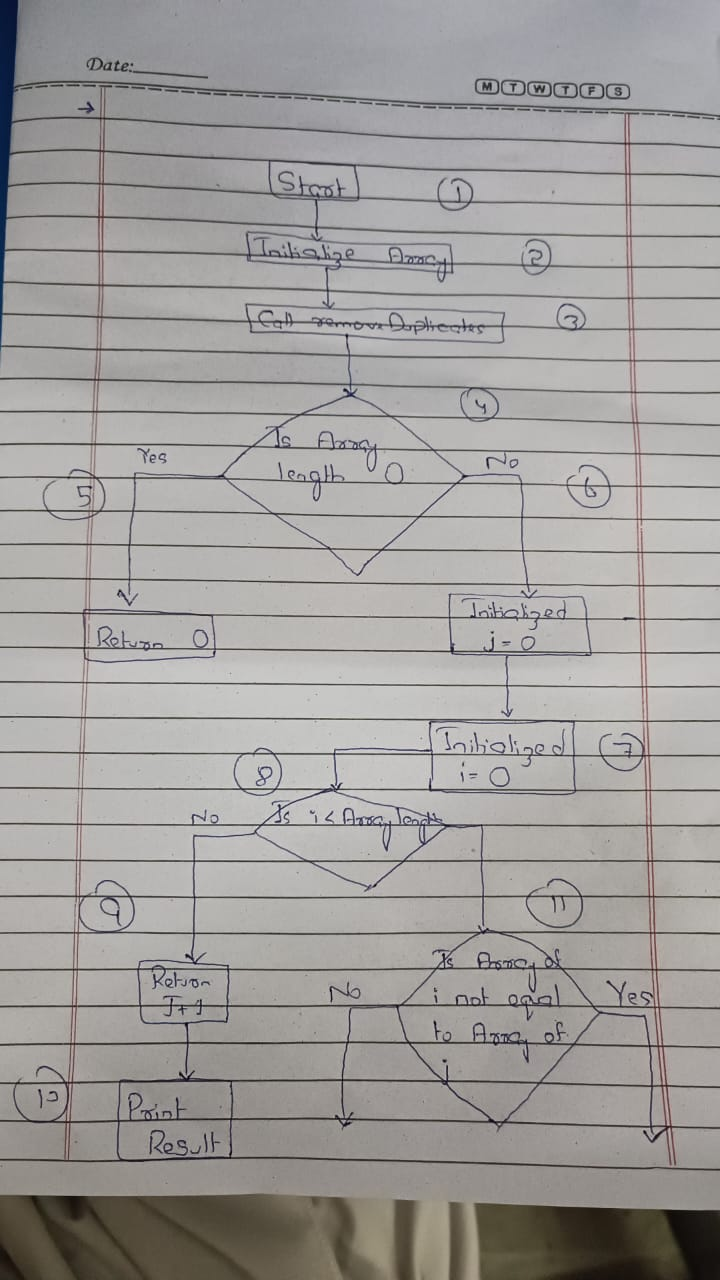 Date:
M T W T F S
→
Start
1
Initialize Array
2
Call removeDuplicates
3
4
Is Array
length 0
Yes
No
5
6
Return 0
Initialized
j = 0
Initialized
i = 0
7
8
Is i < Array length
No
9
11
Return
J+1
Is Array of
i not equal
to Array of
j
No
Yes
10
Print
Result